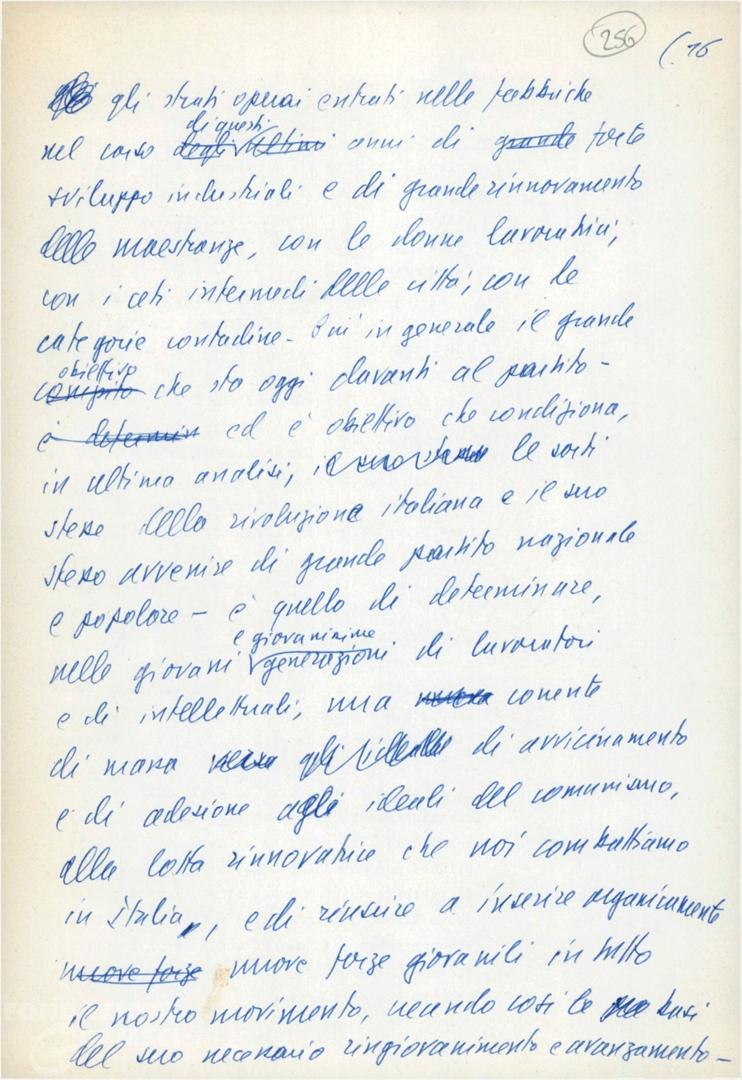 256 (16
gli strati operai entrati nelle fabbriche
di questi
nel corso degli ultimi anni di grande forte
sviluppo industriali e di grande rinnovamento
delle maestranze, con le donne lavoratrici,
con i ceti intermedi delle città, con le
categorie contadine - Più in generale il grande
obiettivo
compito che sta oggi davanti al partito -
è determin ed è obiettivo che condiziona,
in ultima analisi, il suo le sorti
stesse della rivoluzione italiana e il suo
stesso avvenire di grande partito nazionale
e popolare - è quello di determinare,
e giovanissime
nelle giovani generazioni di lavoratori
e di intellettuali, una nuova corrente
di massa verso gli ideali di avvicinamento
e di adesione agli ideali del comunismo,
alla lotta rinnovatrice che noi combattiamo
in Italia, e di riuscire a inserire organicamente
nuove forze nuove forze giovanili in tutto
il nostro movimento, creando così le basi
del suo necessario ringiovanimento e avanzamento -